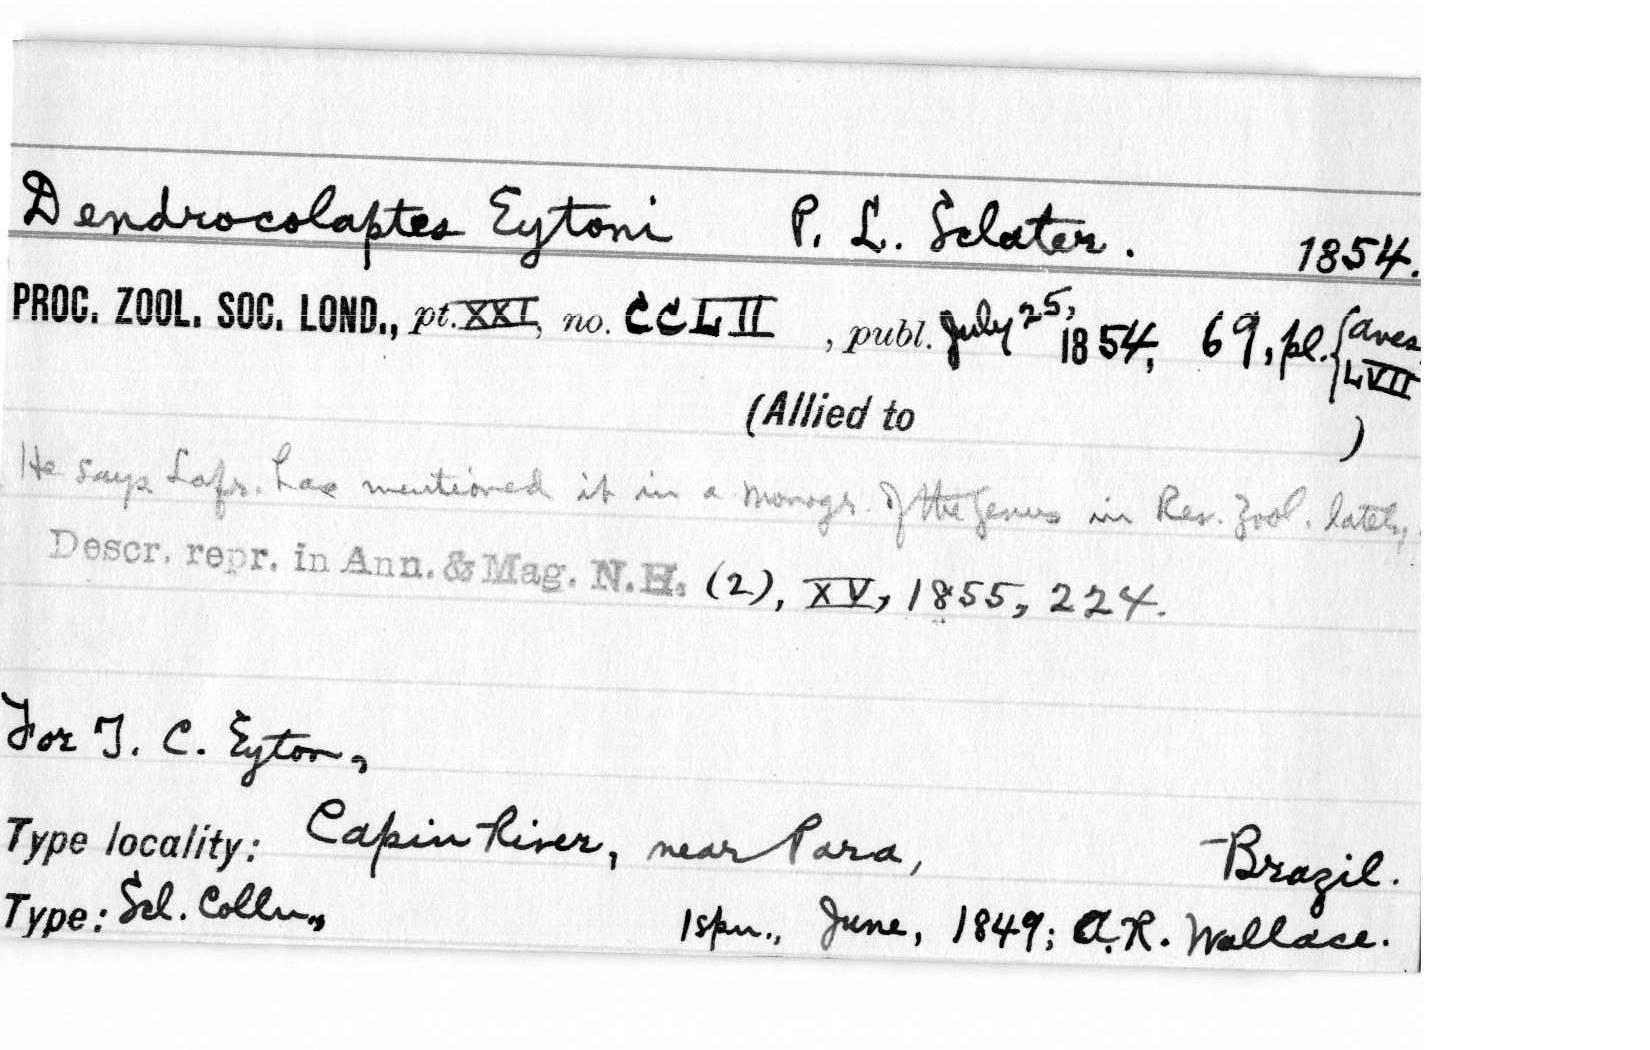 Dendrocolaptes Eytoni P. L. Sclater. 1854.
PROC. ZOOL. SOC. LOND., pt. XXI, no. CCLII , publ. July 25, 1854, 69, pl. {Aves LVII
(Allied to )
He says Lafr. has mentioned it in a monogr. of the genus in Rev. Zool. lately.
Descr. repr. in Ann. & Mag. N.H. (2), XV, 1855, 224.
For T. C. Eyton,
Type locality: Capin River, near Para, Brazil.
Type: Scl. Colln., 1 spn., June, 1849; A. R. Wallace.